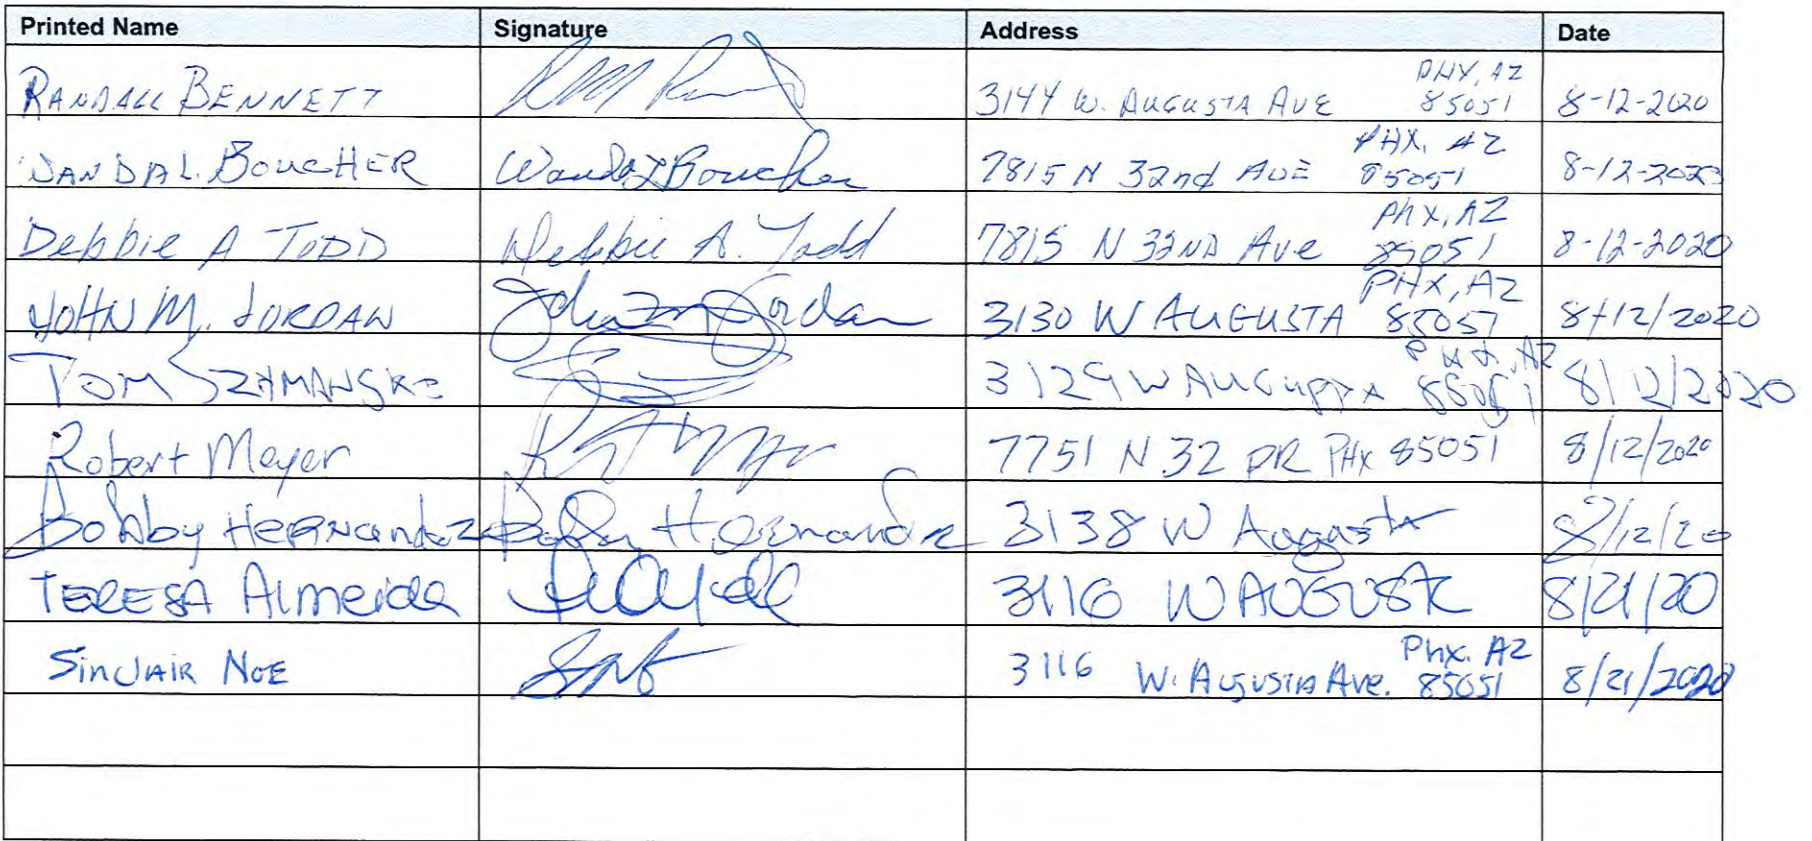 Printed Name Signature Address Date
RANDALL BENNETT 3144 W. AUGUSTA AVE PHX, AZ 85051 8-12-2020
WANDA L. BOUCHER Wanda L Boucher 7815 N 32nd AVE PHX, AZ 85051 8-12-2020
Debbie A TODD Debbie A. Todd 7815 N 32ND Ave PHX, AZ 85051 8-12-2020
JOHN M. JORDAN John M Jordan 3130 W AUGUSTA PHX, AZ 85051 8/12/2020
TOM 3129 W AUGUSTA PHX, AZ 85051 8/12/2020
Robert Meyer 7751 N 32 DR PHX 85051 8/12/2020
Bobby HERNandez Bobby Hernandez 3138 W Augusta 8/12/20
TERESA Almeida 3116 W AUGUSTA 8/21/20
SINCLAIR NOE 3116 W. AUGUSTA Ave. Phx. AZ 85051 8/21/2020